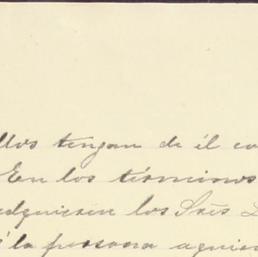 llos tengan de él co
En los términos
adquieren los Sres
á la persona a quien